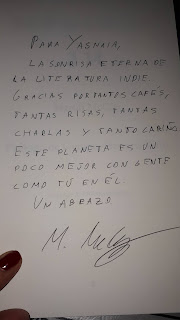 PARA YASNAIA,
LA SONRISA ETERNA DE
LA LITERATURA INDIE.
GRACIAS POR TANTOS CAFÉS,
TANTAS RISAS, TANTAS
CHARLAS Y TANTO CARIÑO
ESTE PLANETA ES UN
POCO MEJOR CON GENTE
COMO TÚ EN ÉL.
UN ABRAZO.
M.